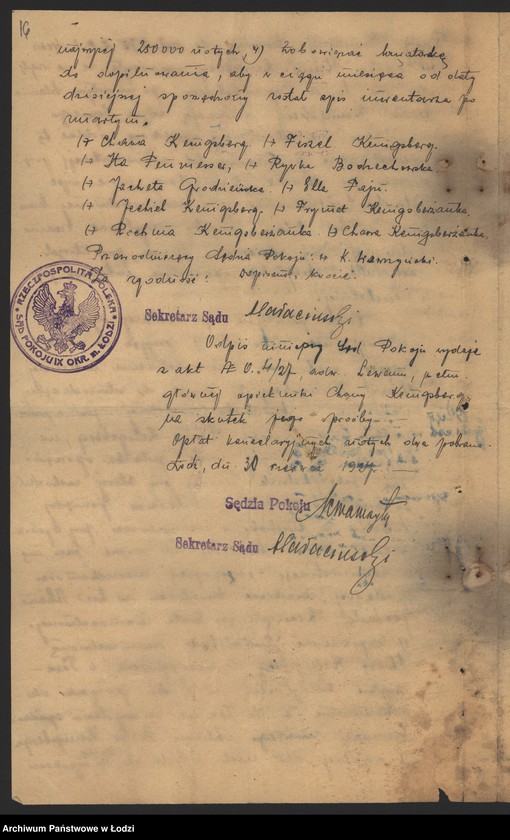 16
najwyżej 250000 złotych, 4) zobowiązać kuratorkę
do dopilnowania, aby w ciągu miesiąca od daty
dzisiejszej sporządzony został spis inwentarza po
zmarłym.
/-/ Chana Kenigsberg /-/ Fiszel Kenigsberg.
/-/ Ita /-/ Rywka Bodzechowska
/-/ Jachweta Grodzieńska. /-/ Ella
/-/ Jechiel Kenigsberg. /-/ Frymet Kenigsberżanka.
/-/ Ruchma Kenigsberżanka. /-/ Chawa Kenigsberżanka.
Przewodniczący Sędzia Pokoju: /-/ K. Wawrzyński.
zgodność:
RZECZPOSPOLITA POLSKA
SĄD POKOJU IX OKR. m. ŁODZI
Sekretarz Sądu
Odpis niniejszy Sąd Pokoju wydaje
z akt 4/27, adw. pełn.
głównej opiekunki Chany Kenigsberg
na skutek jego prośby
Opłat kancelaryjnych złotych dwa pobrano.
Łódź, dn. 30 1927
Sędzia Pokoju
Sekretarz Sądu
Archiwum Państwowe w Łodzi